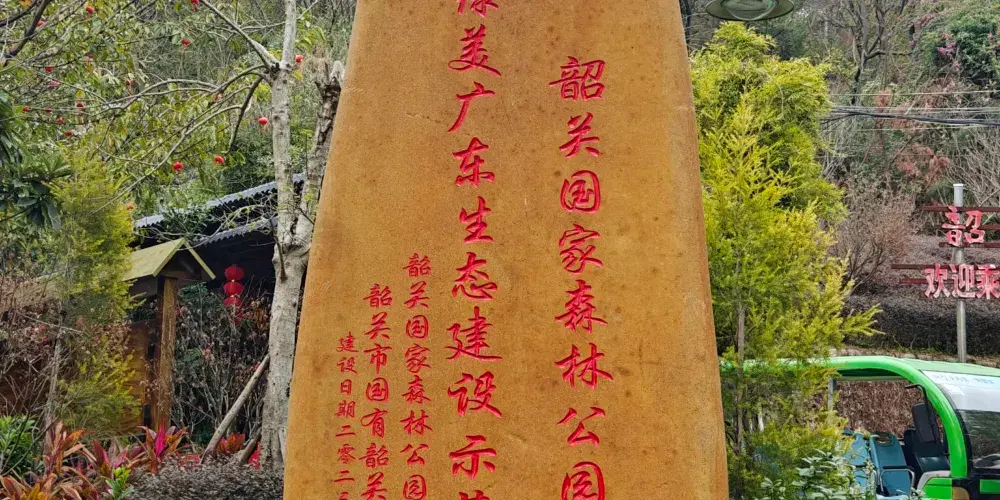 韶关国家森林公园
美广东生态建设示
韶关国家森林公园
韶关市国有韶关
建设日期二零二
韶
欢迎乘